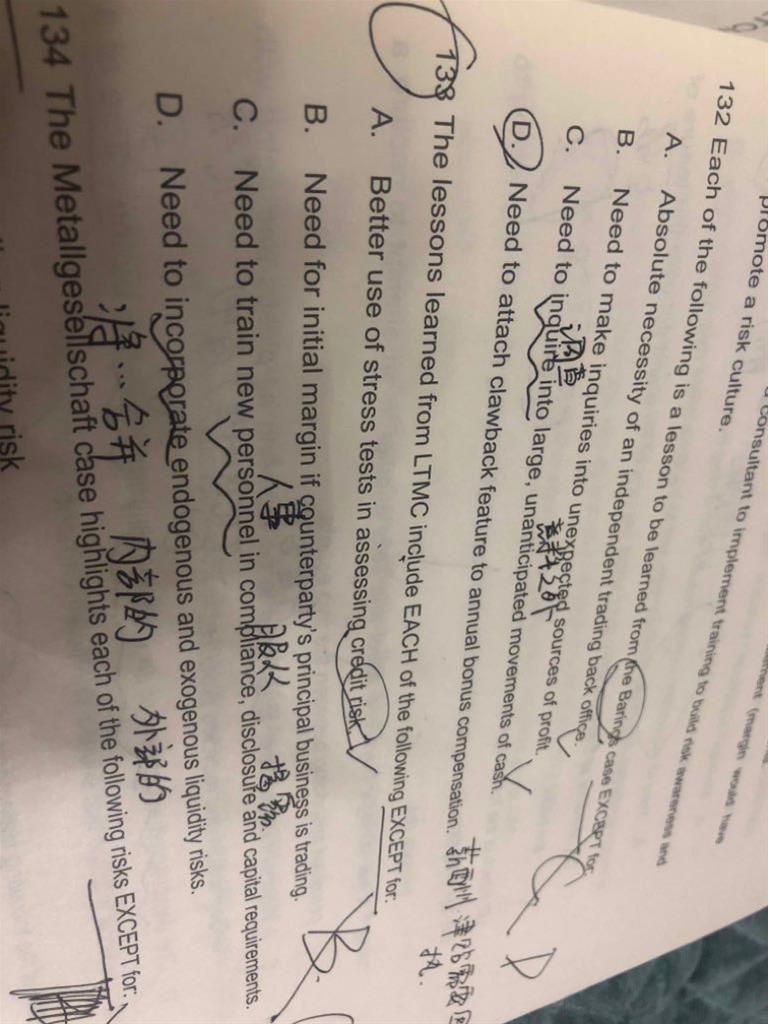 promote a risk culture.
consultant to implement training to build risk awareness and
(margin would have
132 Each of the following is a lesson to be learned from the Barings case EXCEPT for:
A. Absolute necessity of an independent trading back office.
B. Need to make inquiries into unexpected sources of profit.
意料之外
C. Need to inquire into large, unanticipated movements of cash.
调查
D. Need to attach clawback feature to annual bonus compensation.
D
133 The lessons learned from LTMC include EACH of the following EXCEPT for:
B
A. Better use of stress tests in assessing credit risk.
B. Need for initial margin if counterparty's principal business is trading.
C. Need to train new personnel in compliance, disclosure and capital requirements.
人事 服从 揭露
D. Need to incorporate endogenous and exogenous liquidity risks.
将...合并 内部的 外部的
134 The Metallgesellschaft case highlights each of the following risks EXCEPT for:
liquidity risk